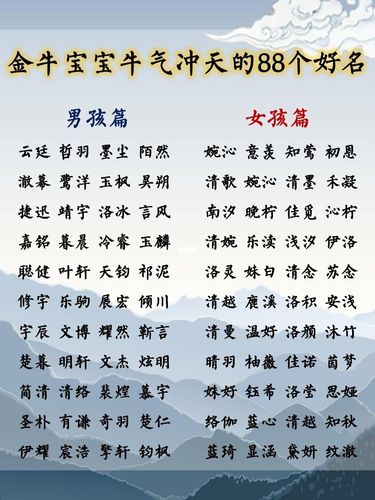 金牛宝宝牛气冲天的88个好名
男孩篇
云廷 哲羽 墨尘 陌然
澈幕 鹭洋 玉枫 昊朔
捷迅 靖宇 洛冰 言风
嘉铭 暮晨 冷睿 玉麟
聪健 叶轩 天钧 祁泥
修宇 乐驹 展宏 倾川
宇辰 文博 耀然 靳言
楚暮 明轩 文杰 炫明
简清 清络 裴煌 慕宇
圣朴 有谦 奇羽 楚仁
伊耀 宸浩 擎轩 钧枫
女孩篇
婉沁 意羡 知莺 初恩
清歌 婉沁 清墨 禾凝
南汐 晚柠 佳觅 沁柠
清婉 乐渎 浅汐 伊洛
洛灵 妹白 清念 苏念
清越 鹿溪 洛积 安浅
清曼 温好 洛颜 沐竹
晴羽 柚薇 佳诺 茵梦
妹好 钰希 洛莹 思娅
络伽 蓝心 清越 知秋
蓝琦 亚涵 黛妍 纹澈